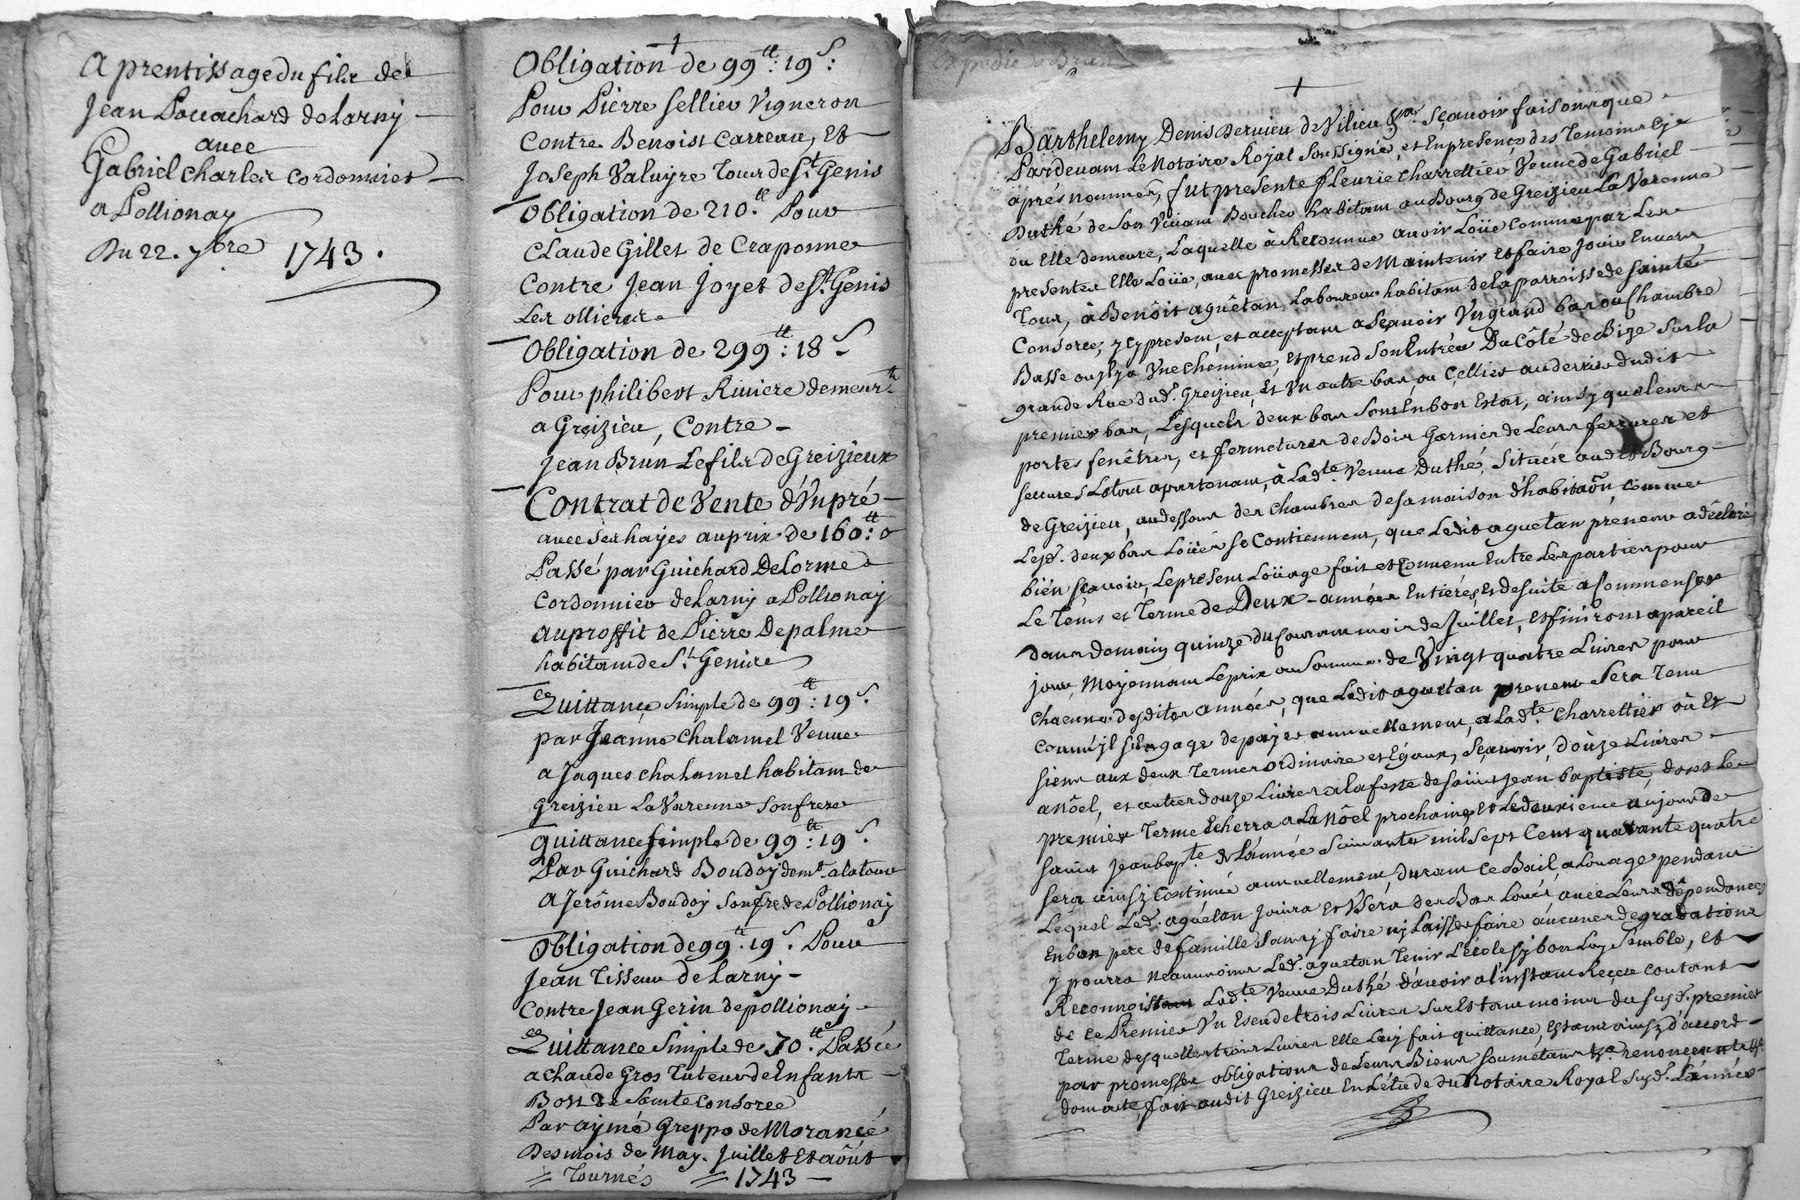 Aprentissage du fils de
Jean Pouachard de Larny
avec
Gabriel Charles Cordonnier
a Pollionay
Du 22. 7bre 1743.
Obligation de 99tt: 19s:
Pour Pierre Sellier Vigneron
Contre Benoist Carreau, Et
Joseph Valuyre Tous de St Genis
Obligation de 210.tt Pour
Claude Gillet de Craponne
Contre Jean Joyet de St Genis
Les ollieres
Obligation de 299tt: 18s
Pour philibert Riviere demeurt
a Greizieu, Contre
Jean Brun Le fils de Greizieux
Contrat de Vente d'Vn pré
avec Ses hayes au prix de 160:tt
Passé par Guichard Delorme
Cordonnier de Larny a Pollionay
au proffit de Pierre Depalme
habitant de St Genire
Quittance Simple de 99tt: 19s.
par Jeanne Chalamel Veuve
a Jaques Chalamel habitant de
Greizieu La Varenne Son frere
quittance Simple de 99tt: 19s.
Par Guichard Boudoy demt. a la tour
a Jerôme Boudoy Son fre de Pollionay
Obligation de 99tt. 19s. Pour
Jean Tisseur de Larny
Contre Jean Gerin de pollionay
Quittance Simple de 70.tt Passée
a Claude Gros Tuteur de Enfants
Bost de Sainte Consorce
Par aymé Greppo de Morancé
Des mois de May. Juillet Et août
Tournés 1743
Expedié
Barthelemy Denis Dervieu de Vilieu Sçavoir faisons que
Pardevant Le Notaire Royal Soussigné, et En presence des Temoins Cy
aprés nommés, fut presente Fleurie Charrettier Veuve de Gabriel
Duthé de Son Vivant Boucher habitant au Bourg de Greizieu La Varenne
ou Elle demeure, Laquelle à Reconnue avoir Loüe Comme par Les
presentes Elle Loüe, avec promesses de Maintenir et faire Jouir Envers
Tous, à Benôit aguêtan Laboureur habitant de la parroisse de Sainte
Consorce, ycy present, et acceptant a Sçavoir Vn grand bas ou Chambre
Basse ou Jl y a Vne Cheminée, Et prend Son Entrée Du Côté de Bize Sur la
grande Rue dud. Greizieu, Et Vn autre bas ou Cellier au derrier dudit
premier bas, Lesquels deux bas Sont En bon Estat, ainsy que leurs
portes fenêtres, et fermetures de Bois Garnies de Leurs ferrures et
serrures Le tout apartenant, à Ladte. Veuve Duthé, Situés audit Bourg
de Greizieu, au dessous des Chambres de sa maison d'habitaôn, Comme
Lesd. deux bas Loüés Se Contiennent, que Ledit aguetan preneur a declaré
bien Sçavoir, Le present Loüage fait et Convenu Entre Les parties pour
Le Tems et Terme de Deux années Entieres, Et de Suite a Commenser
dans demain quinze du Courant mois de Juillet, Et finiront a pareil
jour, Moyennant Le prix ou Somme de Vingt quatre Livres pour
Chacune desdites années, que Ledit aguetan preneur Sera Tenu
Comm'jl s'Engage de payer annuellement, a Ladte. Charrettier où Et
siens aux deux Termes ordinaire et Egaux, Sçavoir, douze Livres
a nôel, et autres douze Livres a la feste de Saint Jean baptiste, dont Le
premier Terme Echerra a La Nôel prochaine et Le deuxieme au jour de
saint Jean bapte. de L'année Suivante mil Sept Cent quarante quatre
sera ainsy Continué annuellement, durant Ce Bail, a Loüage pendant
Lequel Led. aguétan Joüira Et Vsera des Bas Loués avec Leurs dépendances
En bon pere de famille Sans y faire ny Laisser faire aucunes degradations
y pourra neanmoins Led. aguetan Tenir L'école Sy bon Luy Semble, et
Reconnoissant Ladte Veuve Duthé d'avoir a l'instant Reçue Contant
de Ce Preneur Vn Escu de trois Livres Sur Et tant moins du Susd. premier
Terme desquelles trois Livres Elle Luy fait quittance, Etant ainsy d'accord
par promesses obligations de Leurs Biens Soumetans &a. renonceants &a.
dont acte, fait audit Greizieu En L'étude du Notaire Royal Susd. L'année